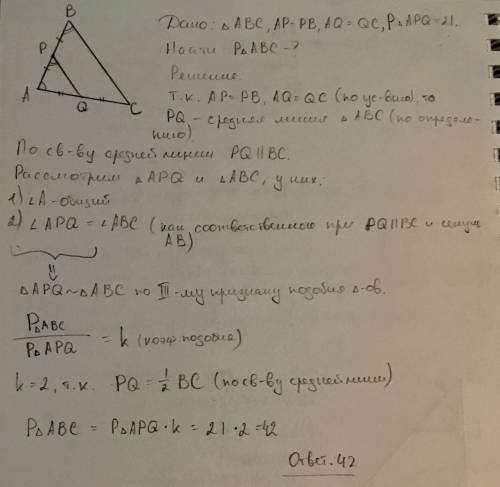 B
P
A
Q
C
Дано: △ABC, AP=PB, AQ=QC, P△APQ=21.
Найти P△ABC-?
Решение.
Т.к. AP=PB, AQ=QC (по ус-вию), то
PQ - средняя линия △ABC (по определе-
нию).
По св-ву средней линии PQ||BC.
Рассмотрим △APQ и △ABC, у них:
1) ∠A-общий
2) ∠APQ = ∠ABC (как соответственного при PQ||BC и секущ
AB)
⇓
△APQ~△ABC по III-му признаку подобия △-ов.
P△ABC
/ P△APQ = k (коэф. подобия)
k=2, т.к. PQ=1/2 BC (по св-ву средней линии)
P△ABC = P△APQ · k = 21 · 2 =42
Ответ: 42